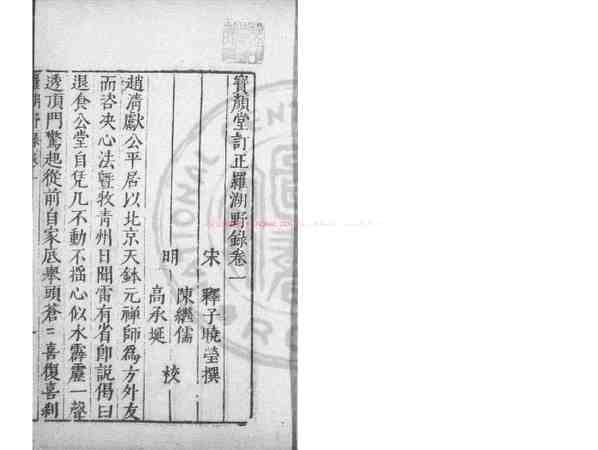 寳顏堂訂正羅湖野錄卷一
宋 釋子曉瑩撰
明 陳繼儒
高承埏 校
趙清獻公平居以北京天鉢元禅師爲方外友
而咨决心法暨牧青州日聞雷有省即說偈曰
退食公堂自凭几不動不揺心似水霹靂一聲
透頂門驚起從前自家底舉頭蒼〻喜復喜刹